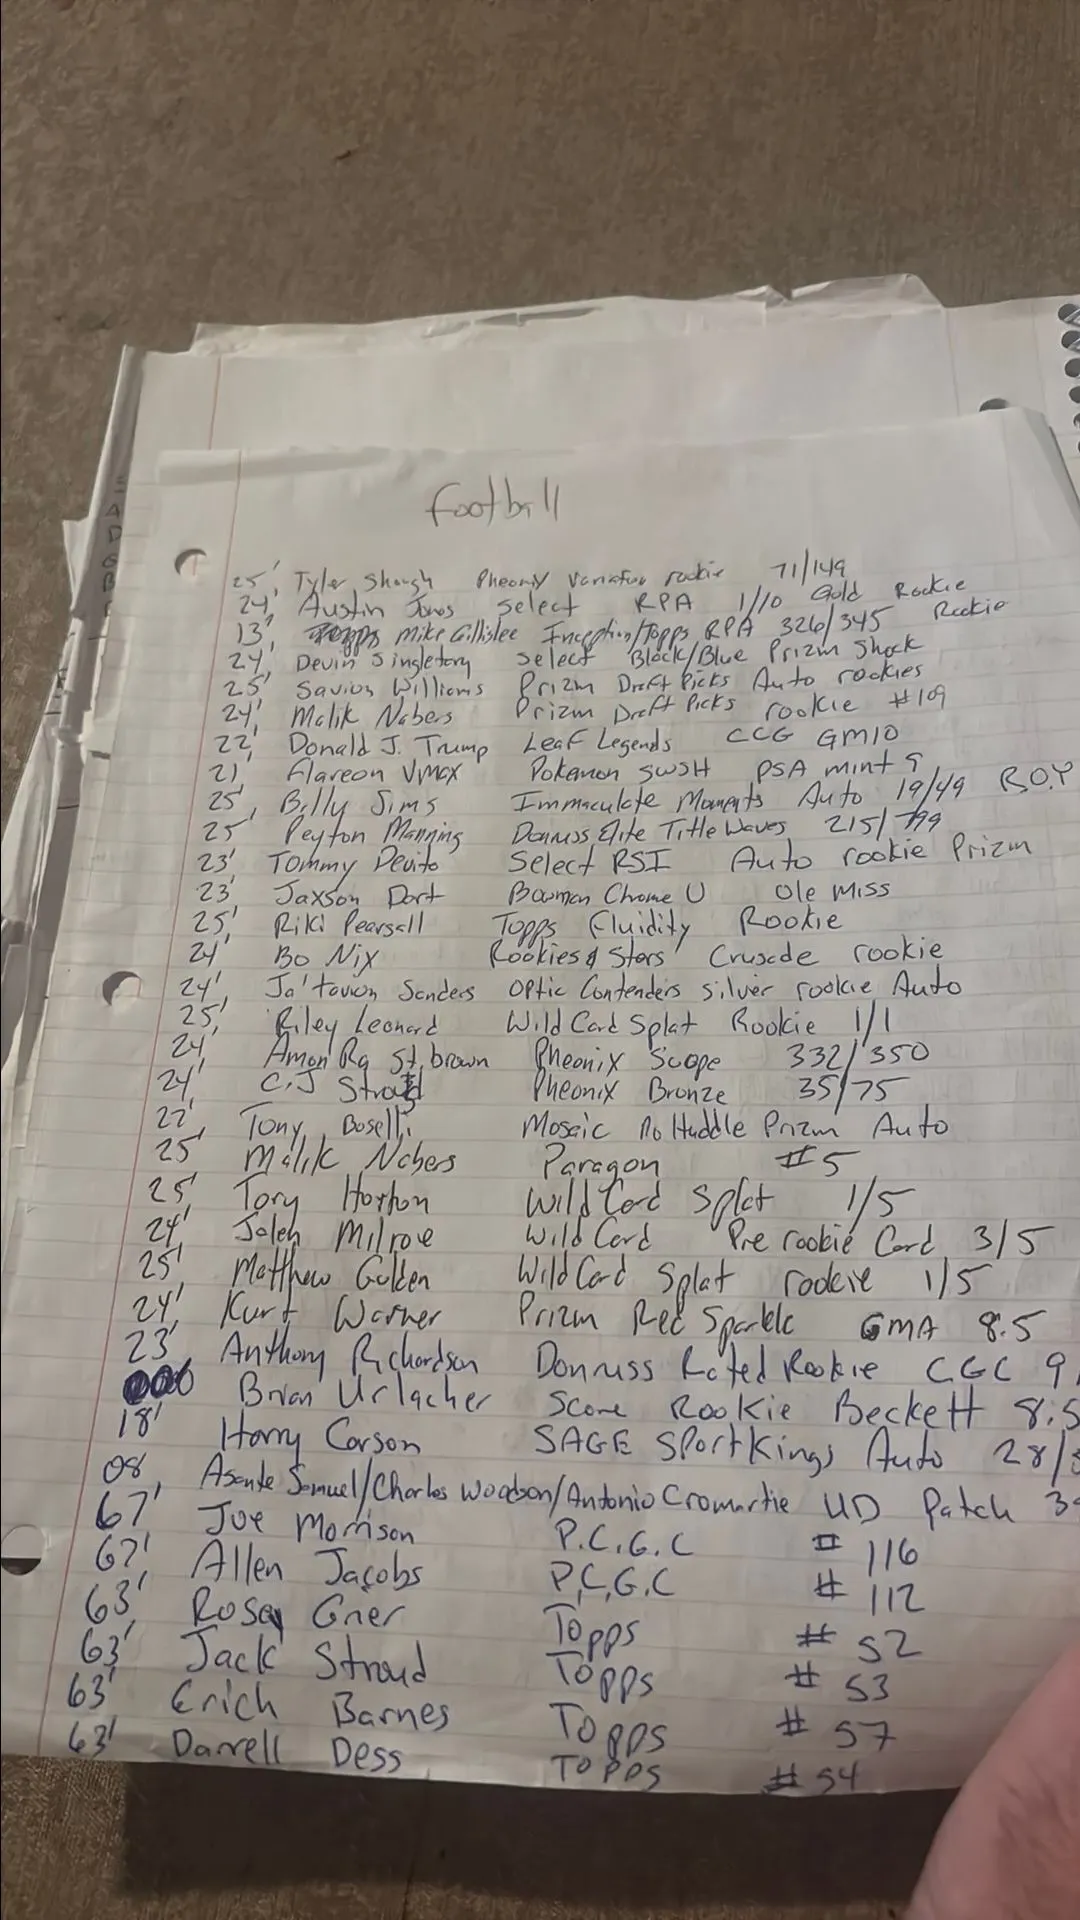 football
25', Tyler Shough Pheonix variation rookie 71/149
24', Austin Jones Select RPA 1/10 Gold Rookie
13', Mike Gillislee Inception/Topps RPA 326/345 Rookie
24', Devin Singletery Select Black/Blue Prizm Shock
25', Savion Williams Prizm Draft Picks Auto rookies
24', Malik Nabers Prizm Draft Picks rookie #109
22', Donald J. Trump Leaf Legends CCG GM10
21', Flareon Vmax Pokemon SWSH PSA mint 9
25', Billy Sims Immaculate Moments Auto 19/49 R.O.Y
25' Peyton Manning Donruss Elite Title Waves 215/799
23', Tommy Devito Select RSI Auto rookie Prizm
23', Jaxson Dart Bowman Chrome U Ole Miss
25', Riki Pearsall Topps Fluidity Rookie
24' Bo Nix Rookies & Stars Crusade rookie
24', Ja'tavion Sanders Optic Contenders silver rookie Auto
25', Riley Leonard Wild Card Splat Rookie 1/1
24', Amon Ra St. brown Pheonix Scope 332/350
24', C.J Stroud Pheonix Bronze 35/75
22', Tony Boselli Mosaic No Huddle Prizm Auto
25' Malik Nabers Paragon #5
25', Tory Horton Wild Card Splat 1/5
24', Jalen Milroe Wild Card Pre rookie Card 3/5
25', Matthew Golden Wild Card Splat rookie 1/5
24', Kurt Warner Prizm Red Sparkle GMA 8.5
23', Anthony Richardson Donruss Rated Rookie CGC 9
Brian Urlacher Score Rookie Beckett 8.5
18' Harry Carson SAGE SportKings Auto 28/
08', Asante Samuel/Charles Woodson/Antonio Cromartie UD Patch
67' Joe Morrison P.C.G.C # 116
67', Allen Jacobs P.C.G.C # 112
63', Rosey Grier Topps # 52
63', Jack Stroud Topps # 53
63' Erich Barnes Topps # 57
63' Darrell Dess Topps # 54